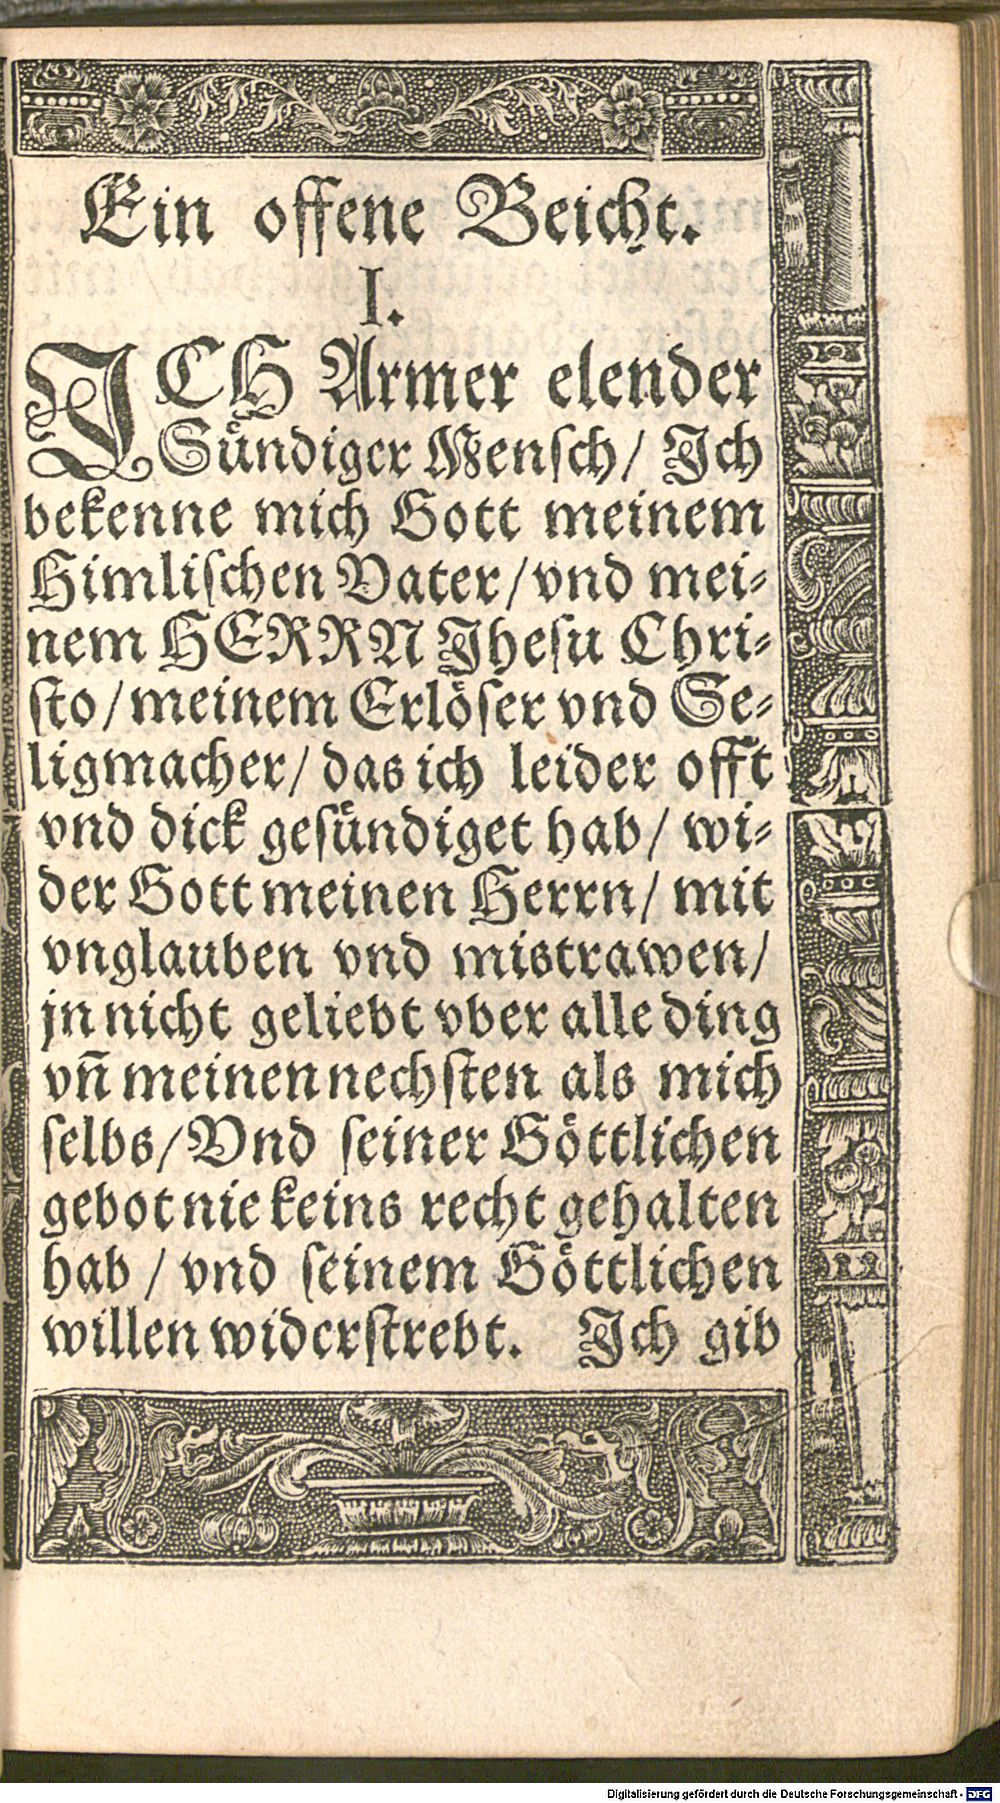 Ein offene Beicht.
I.
ICH Armer elender
Sündiger Mensch/ Ich
bekenne mich Gott meinem
Himlischen Vater/ vnd mei⸗
nem HERRN Jhesu Chri⸗
sto/ meinem Erlöser vnd Se⸗
ligmacher/ das ich leider offt
vnd dick gesündiget hab/ wi⸗
der Gott meinen Herrn/ mit
vnglauben vnd mistrawen/
jn nicht geliebt vber alle ding
vñ meinen nechsten als mich
selbs/ Vnd seiner Göttlichen
gebot nie keins recht gehalten
hab/ vnd seinem Göttlichen
willen widerstrebt. Ich gib
Digitalisierung gefördert durch die Deutsche Forschungsgemeinschaft - DFG